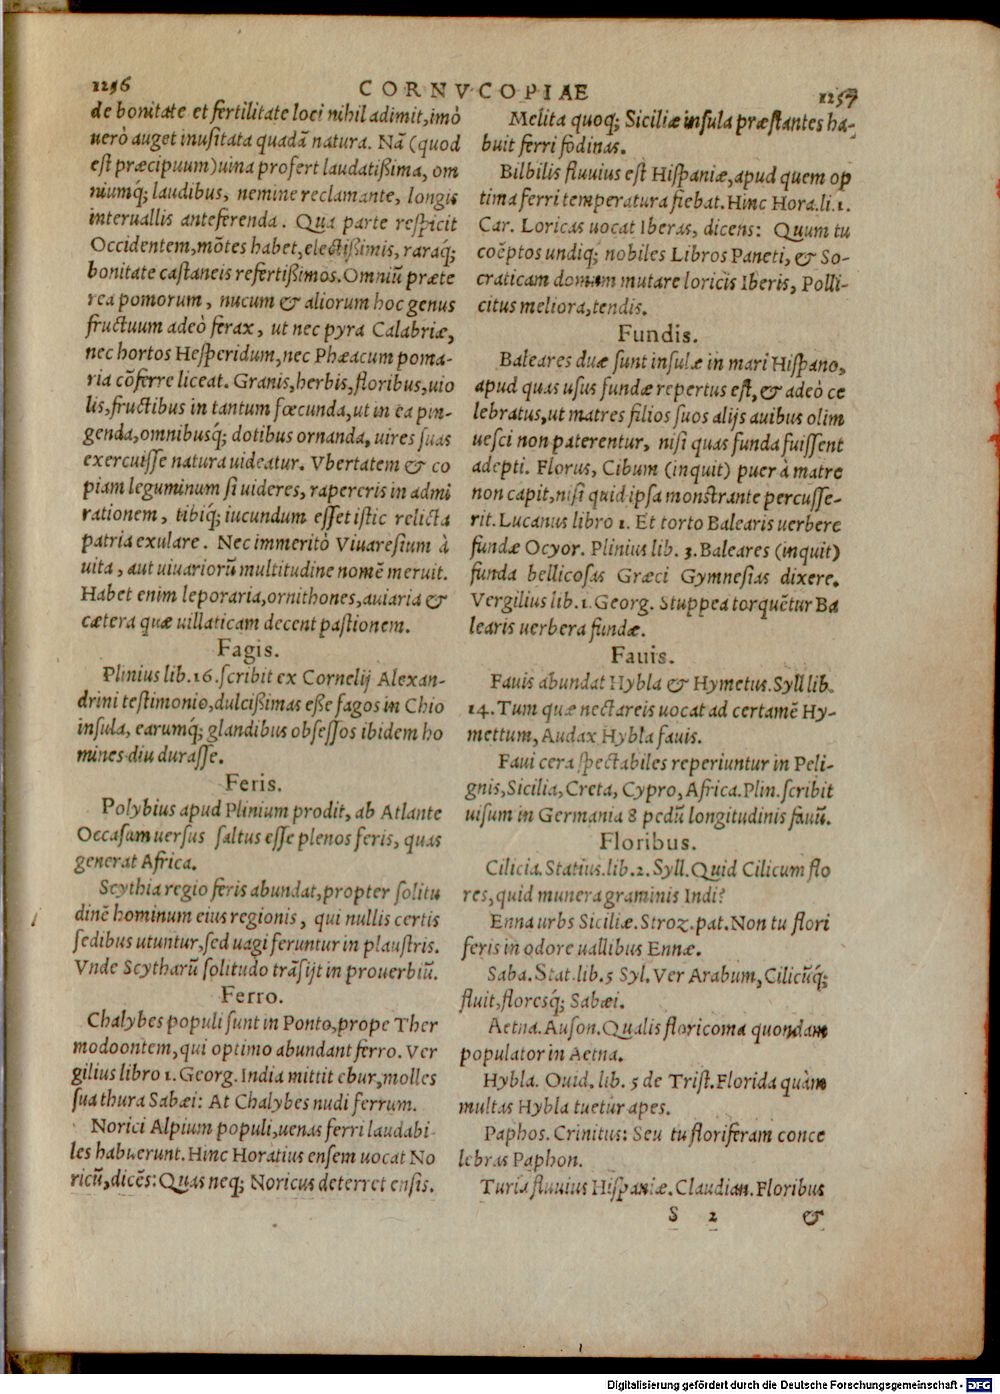 1256
CORNVCOPIAE
1257
de bonitate et fertilitate loci nihil adimit, imò
uerò auget inusitata quadã natura. Nã (quod
est præcipuum) uina profert laudatißima, om
niumq́; laudibus, nemine reclamante, longis
interuallis anteferenda. Qua parte respicit
Occidentem, mõtes habet, electißimis, raraq́;
bonitate castaneis refertißimos. Omniũ præte
rea pomorum, nucum & aliorum hoc genus
fructuum adeò ferax, ut nec pyra Calabriæ,
nec hortos Hesperidum, nec Phæacum poma-
ria cõferre liceat. Granis, herbis, floribus, uio
lis, fructibus in tantum fœcunda, ut in ea pin-
genda, omnibusq́; dotibus ornanda, uires suas
exercuisse natura uideatur. Vbertatem & co
piam leguminum si uideres, rapereris in admi
rationem, tibiq́; iucundum esset istic relicta
patria exulare. Nec immeritò Viuaresium à
uita, aut uiuariorũ multitudine nomẽ meruit.
Habet enim leporaria, ornithones, auiaria &
cætera quæ uillaticam decent pastionem.
Fagis.
Plinius lib. 16. scribit ex Cornelij Alexan-
drini testimonio, dulcißimas eße fagos in Chio
insula, earumq́; glandibus obsessos ibidem ho
mines diu durasse.
Feris.
Polybius apud Plinium prodit, ab Atlante
Occasum uersus saltus esse plenos feris, quas
generat Africa.
Scythia regio feris abundat, propter solitu
dinẽ hominum eius regionis, qui nullis certis
sedibus utuntur, sed uagi feruntur in plaustris.
Vnde Scytharũ solitudo trãsijt in prouerbiũ.
Ferro.
Chalybes populi sunt in Ponto, prope Ther
modoontem, qui optimo abundant ferro. Ver
gilius libro 1. Georg. India mittit ebur, molles
sua thura Sabæi: At Chalybes nudi ferrum.
Norici Alpium populi, uenas ferri laudabi
les habuerunt. Hinc Horatius ensem uocat No
ricũ, dicẽs: Quas neq; Noricus deterret ensis.
Melita quoq; Siciliæ insula præstantes ha-
buit ferri fodinas.
Bilbilis fluuius est Hispaniæ, apud quem op
tima ferri temperatura fiebat. Hinc Hora. li. 1.
Car. Loricas uocat Iberas, dicens: Quum tu
coẽptos undiq; nobiles Libros Paneti, & So-
craticam domum mutare loricis Iberis, Polli-
citus meliora, tendis.
Fundis.
Baleares duæ sunt insulæ in mari Hispano,
apud quas usus fundæ repertus est, & adeò ce
lebratus, ut matres filios suos alijs auibus olim
uesci non paterentur, nisi quas funda fuissent
adepti. Florus, Cibum (inquit) puer à matre
non capit, nisi quid ipsa monstrante percusse-
rit. Lucanus libro 1. Et torto Balearis uerbere
fundæ Ocyor. Plinius lib. 3. Baleares (inquit)
funda bellicosas Græci Gymnesias dixere.
Vergilius lib. 1. Georg. Stuppea torquẽtur Ba
learis uerbera fundæ.
Fauis.
Fauis abundat Hybla & Hymetus. Syll lib.
14. Tum quæ nectareis uocat ad certamẽ Hy-
mettum, Audax Hybla fauis.
Faui cera spectabiles reperiuntur in Peli-
gnis, Sicilia, Creta, Cypro, Africa. Plin. scribit
uisum in Germania 8 pedũ longitudinis fauũ.
Floribus.
Cilicia. Statius. lib. 2. Syll. Quid Cilicum flo
res, quid munera graminis Indi?
Enna urbs Siciliæ. Stroz. pat. Non tu flori
feris in odore uallibus Ennæ.
Saba. Stat. lib. 5 Syl. Ver Arabum, Cilicũq́;
fluit, floresq́; Sabæi.
Aetna. Auson. Qualis floricoma quondam
populator in Aetna.
Hybla. Ouid. lib. 5 de Trist. Florida quàm
multas Hybla tuetur apes.
Paphos. Crinitus: Seu tu floriferam conce
lebras Paphon.
Turia fluuius Hispaniæ. Claudian. Floribus
S 2 &
Digitalisierung gefördert durch die Deutsche Forschungsgemeinschaft - DFG